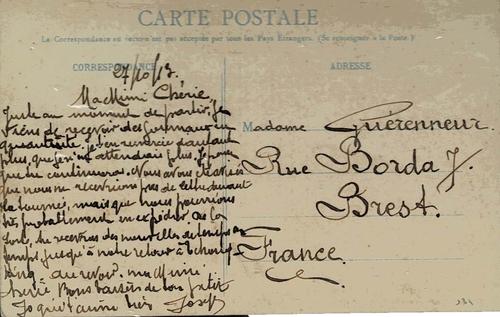 CARTE POSTALE
La Correspondance au recto n'est pas acceptée par tous les Pays Étrangers. (Se renseigner à la Poste.)
CORRESPONDANCE
ADRESSE
27/10/13.
Ma Mimi Chérie
Juste au moment de partir, je
viens de recevoir des journaux en
quantité, je t'en remercie d'autant
plus, que je n'en attendais plus,
que nous ne recevrions pas de lettre durant
la tournée, mais que nous pourrions
probablement en expédier
tu recevras des nouvelles de temps en
temps, jusqu'à notre retour à
au revoir ma Mimi
chérie Bons baisers de ton petit
Jo qui t'aime bien Josef
Madame Guérenneur
Rue Borda 7.
Brest.
France.